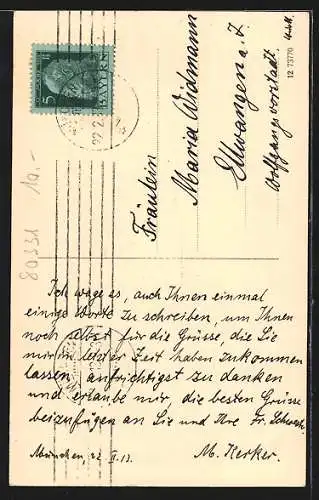 5 5
BAYERN
22. 2.
12 73770
Fräulein
Maria Widmann
Ellwangen a. J.
Wolfgangsvorstadt.
80331 10.-
Ich wage es, auch Ihnen einmal
einige Worte zu schreiben, um Ihnen
noch selbst für die Grüsse, die Sie
mir in letzter Zeit haben zukommen
lassen, aufrichtigst zu danken
und erlaube mir, die besten Grüsse
beizufügen an Sie und Ihre Frl. Schwester.
München, 22. II. 13. M. Kerker.